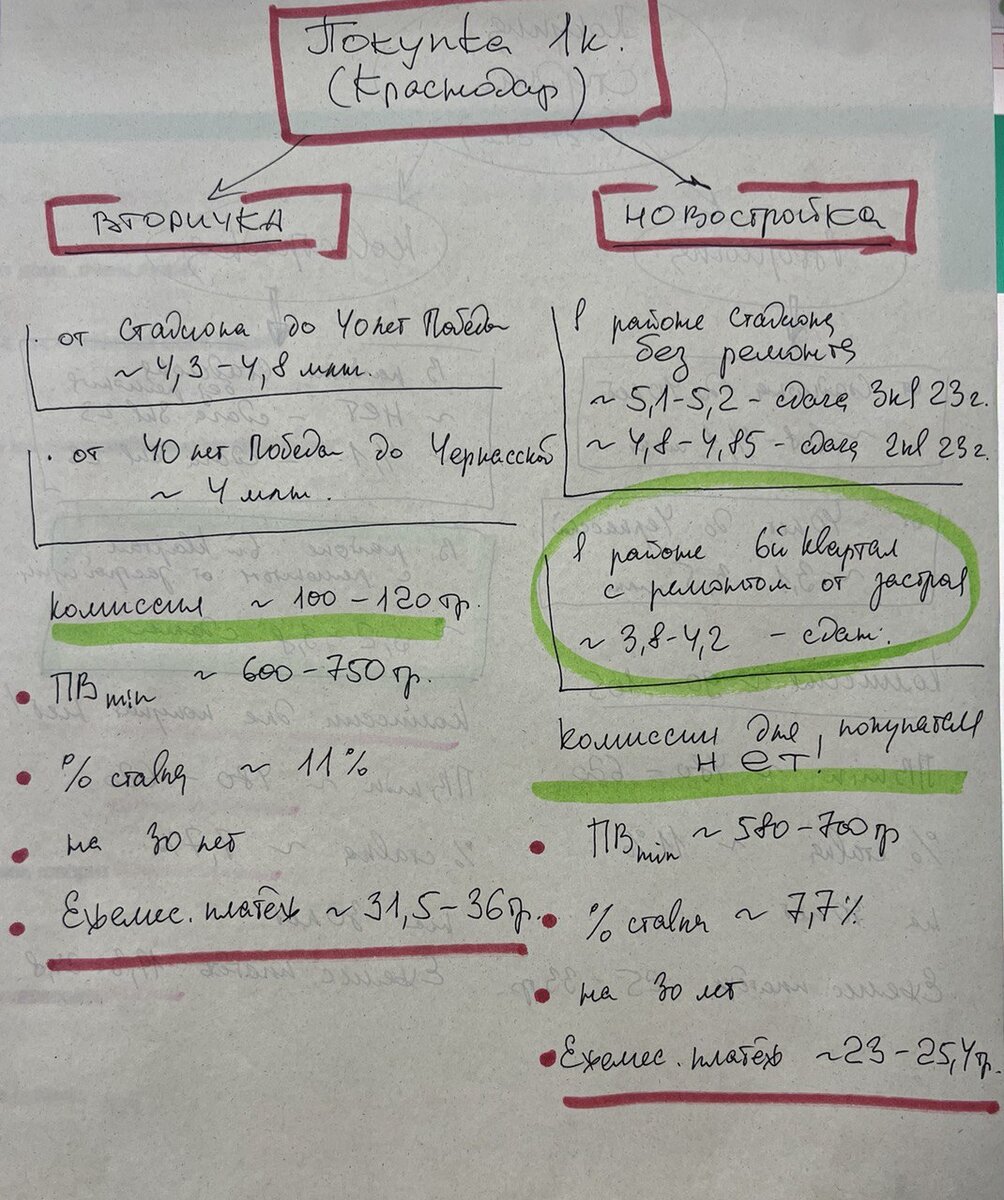 Покупка 1к.
(Краснодар)
ВТОРИЧКА
· от Стадиона до 40 лет Победы
~ 4,3 – 4,8 млн.
· от 40 лет Победы до Черкасской
~ 4 млн.
комиссия ~ 100 – 120 тр.
ПВ min ~ 600 – 750 тр.
% ставка ~ 11 %
на 30 лет
Ежемес. платёж ~ 31,5 – 36 тр.
НОВОСТРОЙКА
В районе Стадиона
без ремонта
~ 5,1 – 5,2 – сдача 3кв 23 г.
~ 4,8 – 4,85 – сдача 2кв 23 г.
В районе 6й Квартал
с ремонтом от застроя
~ 3,8 – 4,2 – сдан.
комиссии для покупателя
НЕТ!
ПВ min ~ 580 – 700 тр
% ставка ~ 7,7 %
на 30 лет
Ежемес. платёж ~ 23 – 25,4 тр.